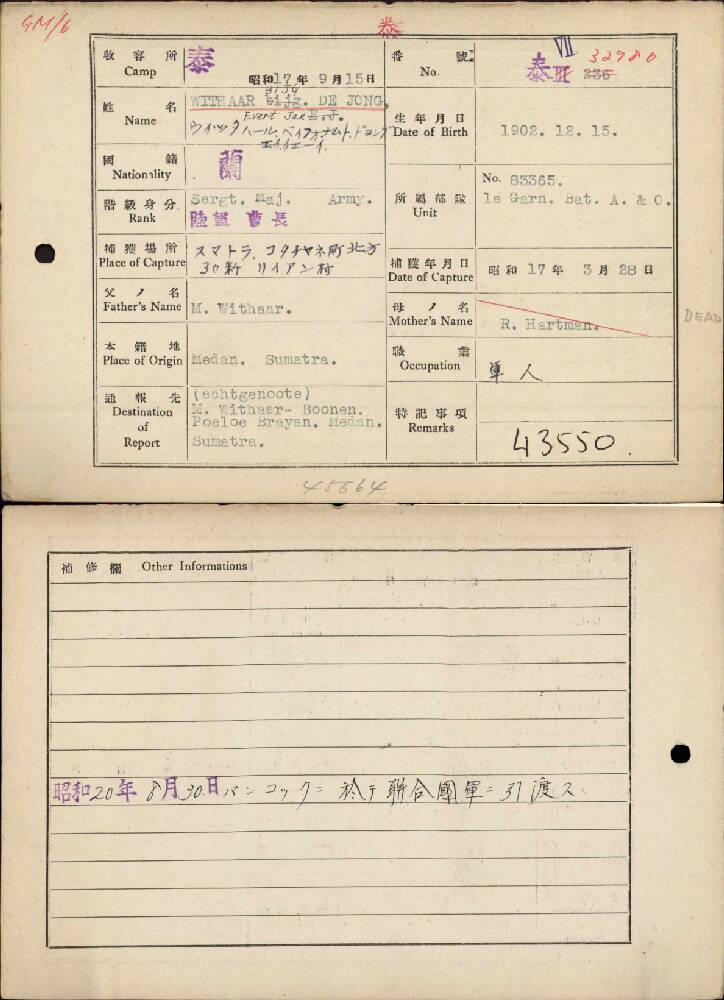 GM/6
泰
收容所 Camp 泰
昭和17年 9月15日
番號 No. 泰 VII 32980
姓名 Name
WITHAAR bijg. DE JONG.
Evert Jan
生年月日 Date of Birth 1902. 12. 15.
國籍 Nationality 蘭
階級身分 Rank
Sergt. Maj. Army.
陸軍 曹長
所屬部隊 Unit
No. 83365.
1e Garn. Bat. A. & O.
捕獲場所 Place of Capture
スマトラ. コタチヤネ町 北方
30新 リイアン村
捕獲年月日 Date of Capture 昭和 17年 3月 28日
父ノ名 Father's Name M. Withaar.
母ノ名 Mother's Name R. Hartman.
DEAD
本籍地 Place of Origin Medan. Sumatra.
職業 Occupation 軍人
通報先 Destination of Report
(echtgenoote)
M. Withaar- Boonen.
Poeloe Brayan. Medan.
Sumatra.
特記事項 Remarks
43550.
45664
補修欄 Other Informations
昭和20年 8月30日 バンコックニ於テ聯合國軍ニ引渡ス